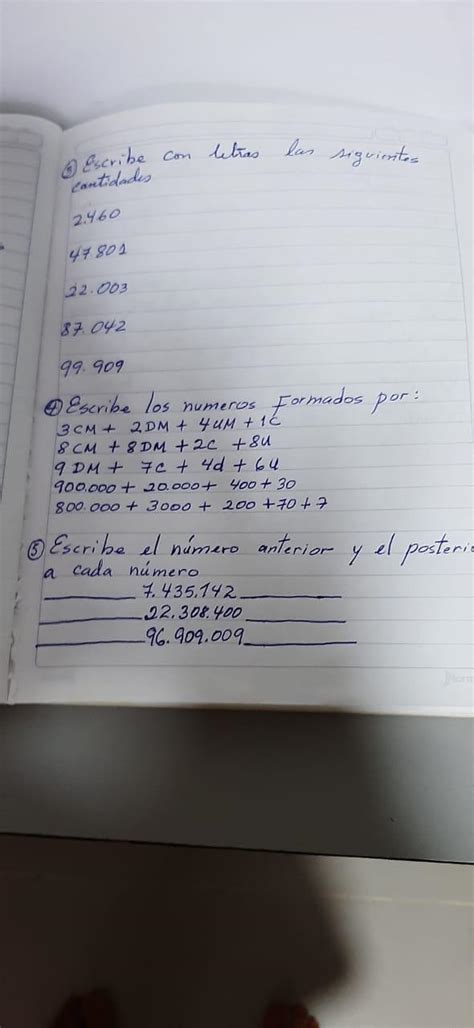 ③ Escribe con letras las siguientes
cantidades
2.460
47.801
22.003
87.042
99.909
④ Escribe los numeros Formados por:
3CM + 2DM + 4UM + 1C
8CM + 8DM + 2C + 8U
9DM + 7C + 4d + 6U
900.000 + 20.000 + 400 + 30
800.000 + 3000 + 200 + 70 + 7
⑤ Escribe el número anterior y el posterio
a cada número
________ 7.435.142 ________
________ 22.308.400 ________
________ 96.909.009 ________